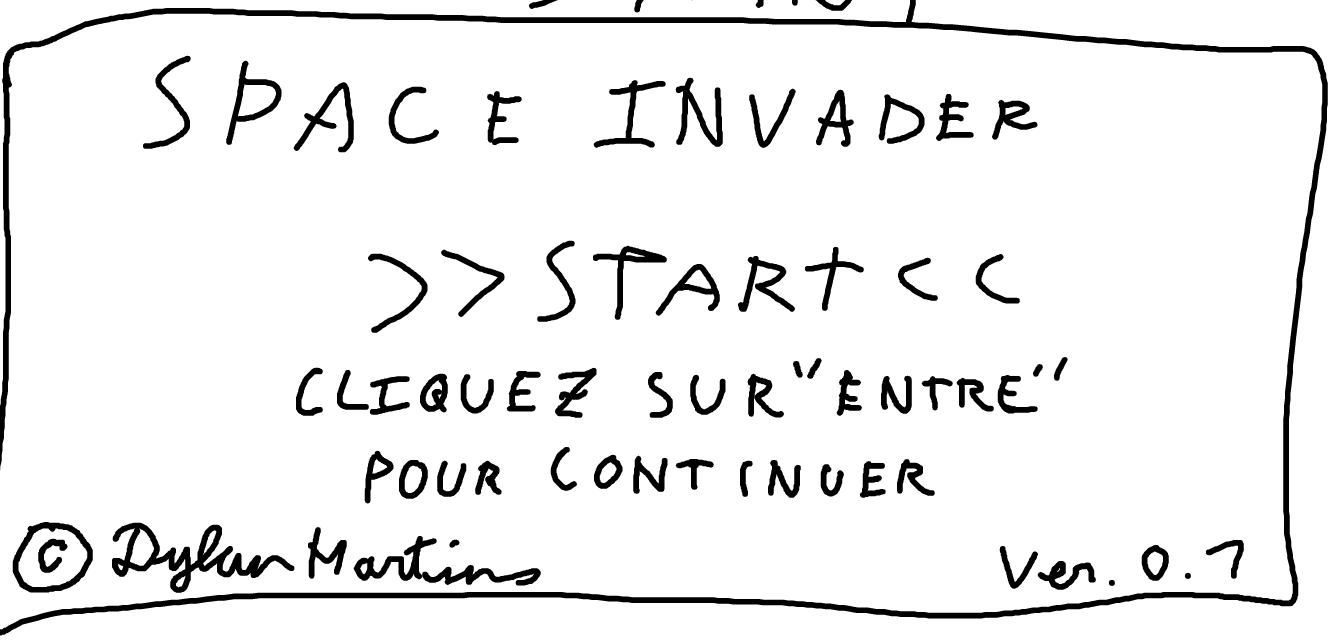 SPACE INVADER
>>START<<
CLIQUEZ SUR "ENTRE"
POUR CONTINUER
© Dylan Martins
Ver. 0.1